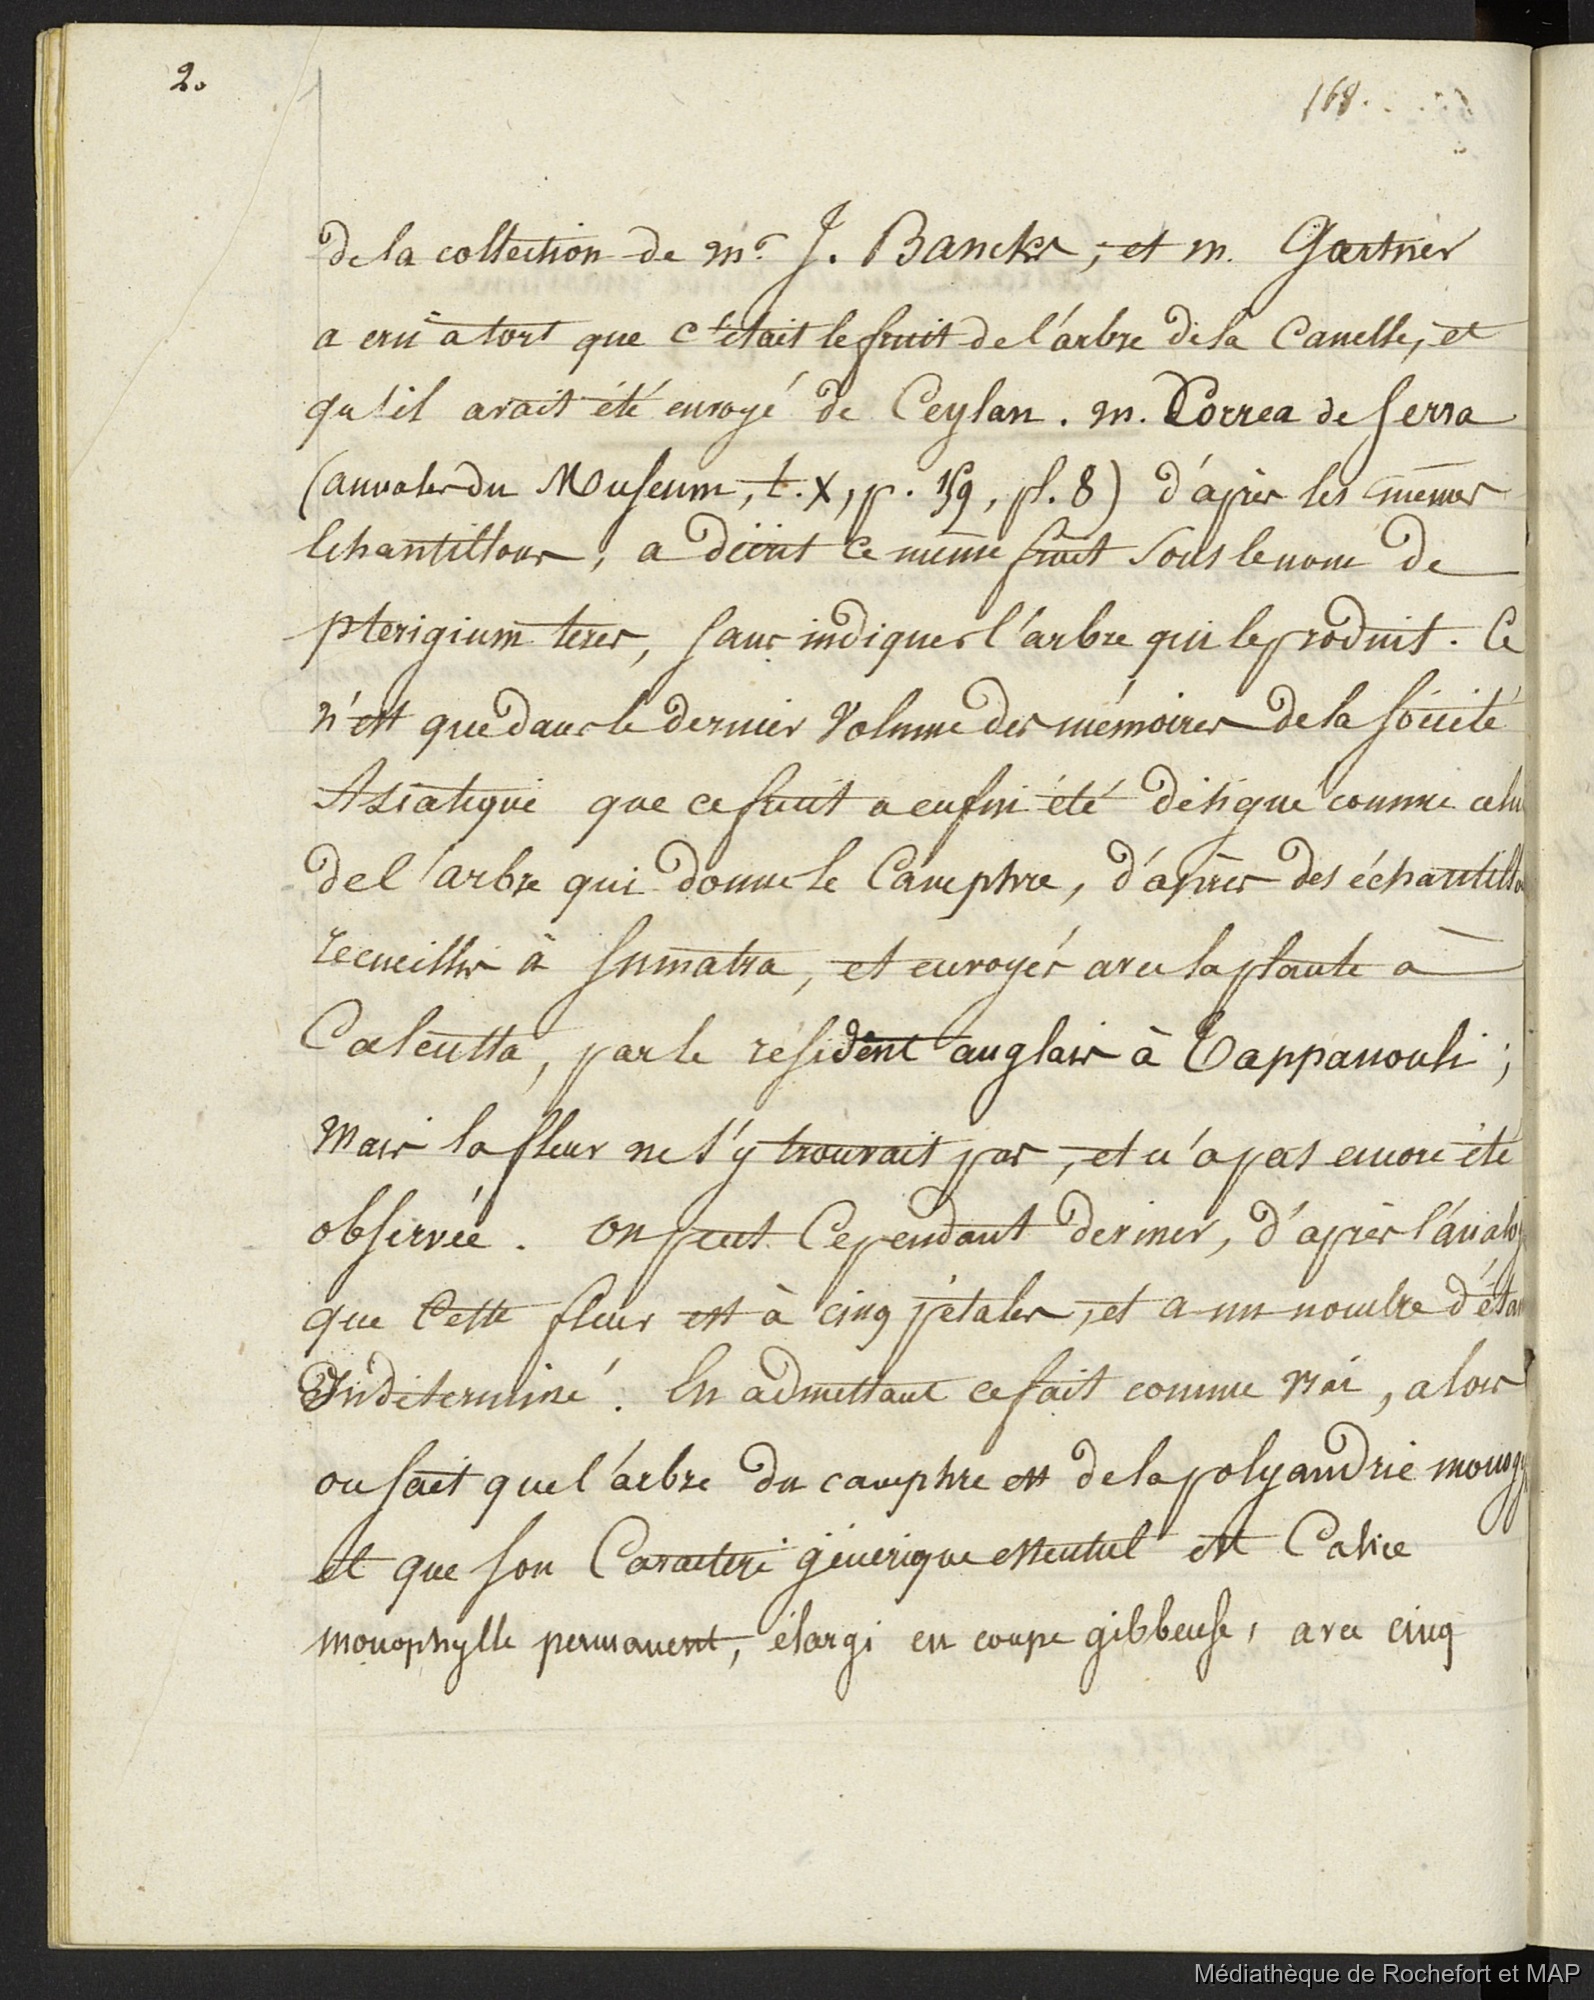 2.
168.
de la collection de mr. J. Bancks, et m. Gærtner
a cru a tort que c'était le fruit de l'arbre de la Canelle, et
qu'il avait été envoyé de Ceylan. m. Correa de Serra
(annales du Museum, t. X, p. 159, pl. 8) d'après les mêmes
échantillons, a décrit ce même fruit sous le nom de
pterigium teres, sans indiquer l'arbre qui le produit. Ce
n'est que dans le dernier Volume des mémoires de la société
Asiatique que ce fruit a enfin été désigné comme celui
de l'arbre qui donne le Camphre, d'après des échantillo
recueillis à Sumatra, et envoyés avec la plante à
Calcutta, par le résident anglais à Tappanouli ;
Mais la fleur ne s'y trouvait pas, et n'a pas encore été
observée. on peut Cependant deviner, d'après l'analog
que Cette fleur est à cinq pétales, et a un nombre d'étam
Indéterminé. En admettant ce fait comme vrai, alors
on sait que l'arbre du camphre est de la polyandrie monogy
et que son Caractère générique essentiel est Calice
monophylle permanent, élargi en coupe gibbeuse, avec cinq
Médiathèque de Rochefort et MAP